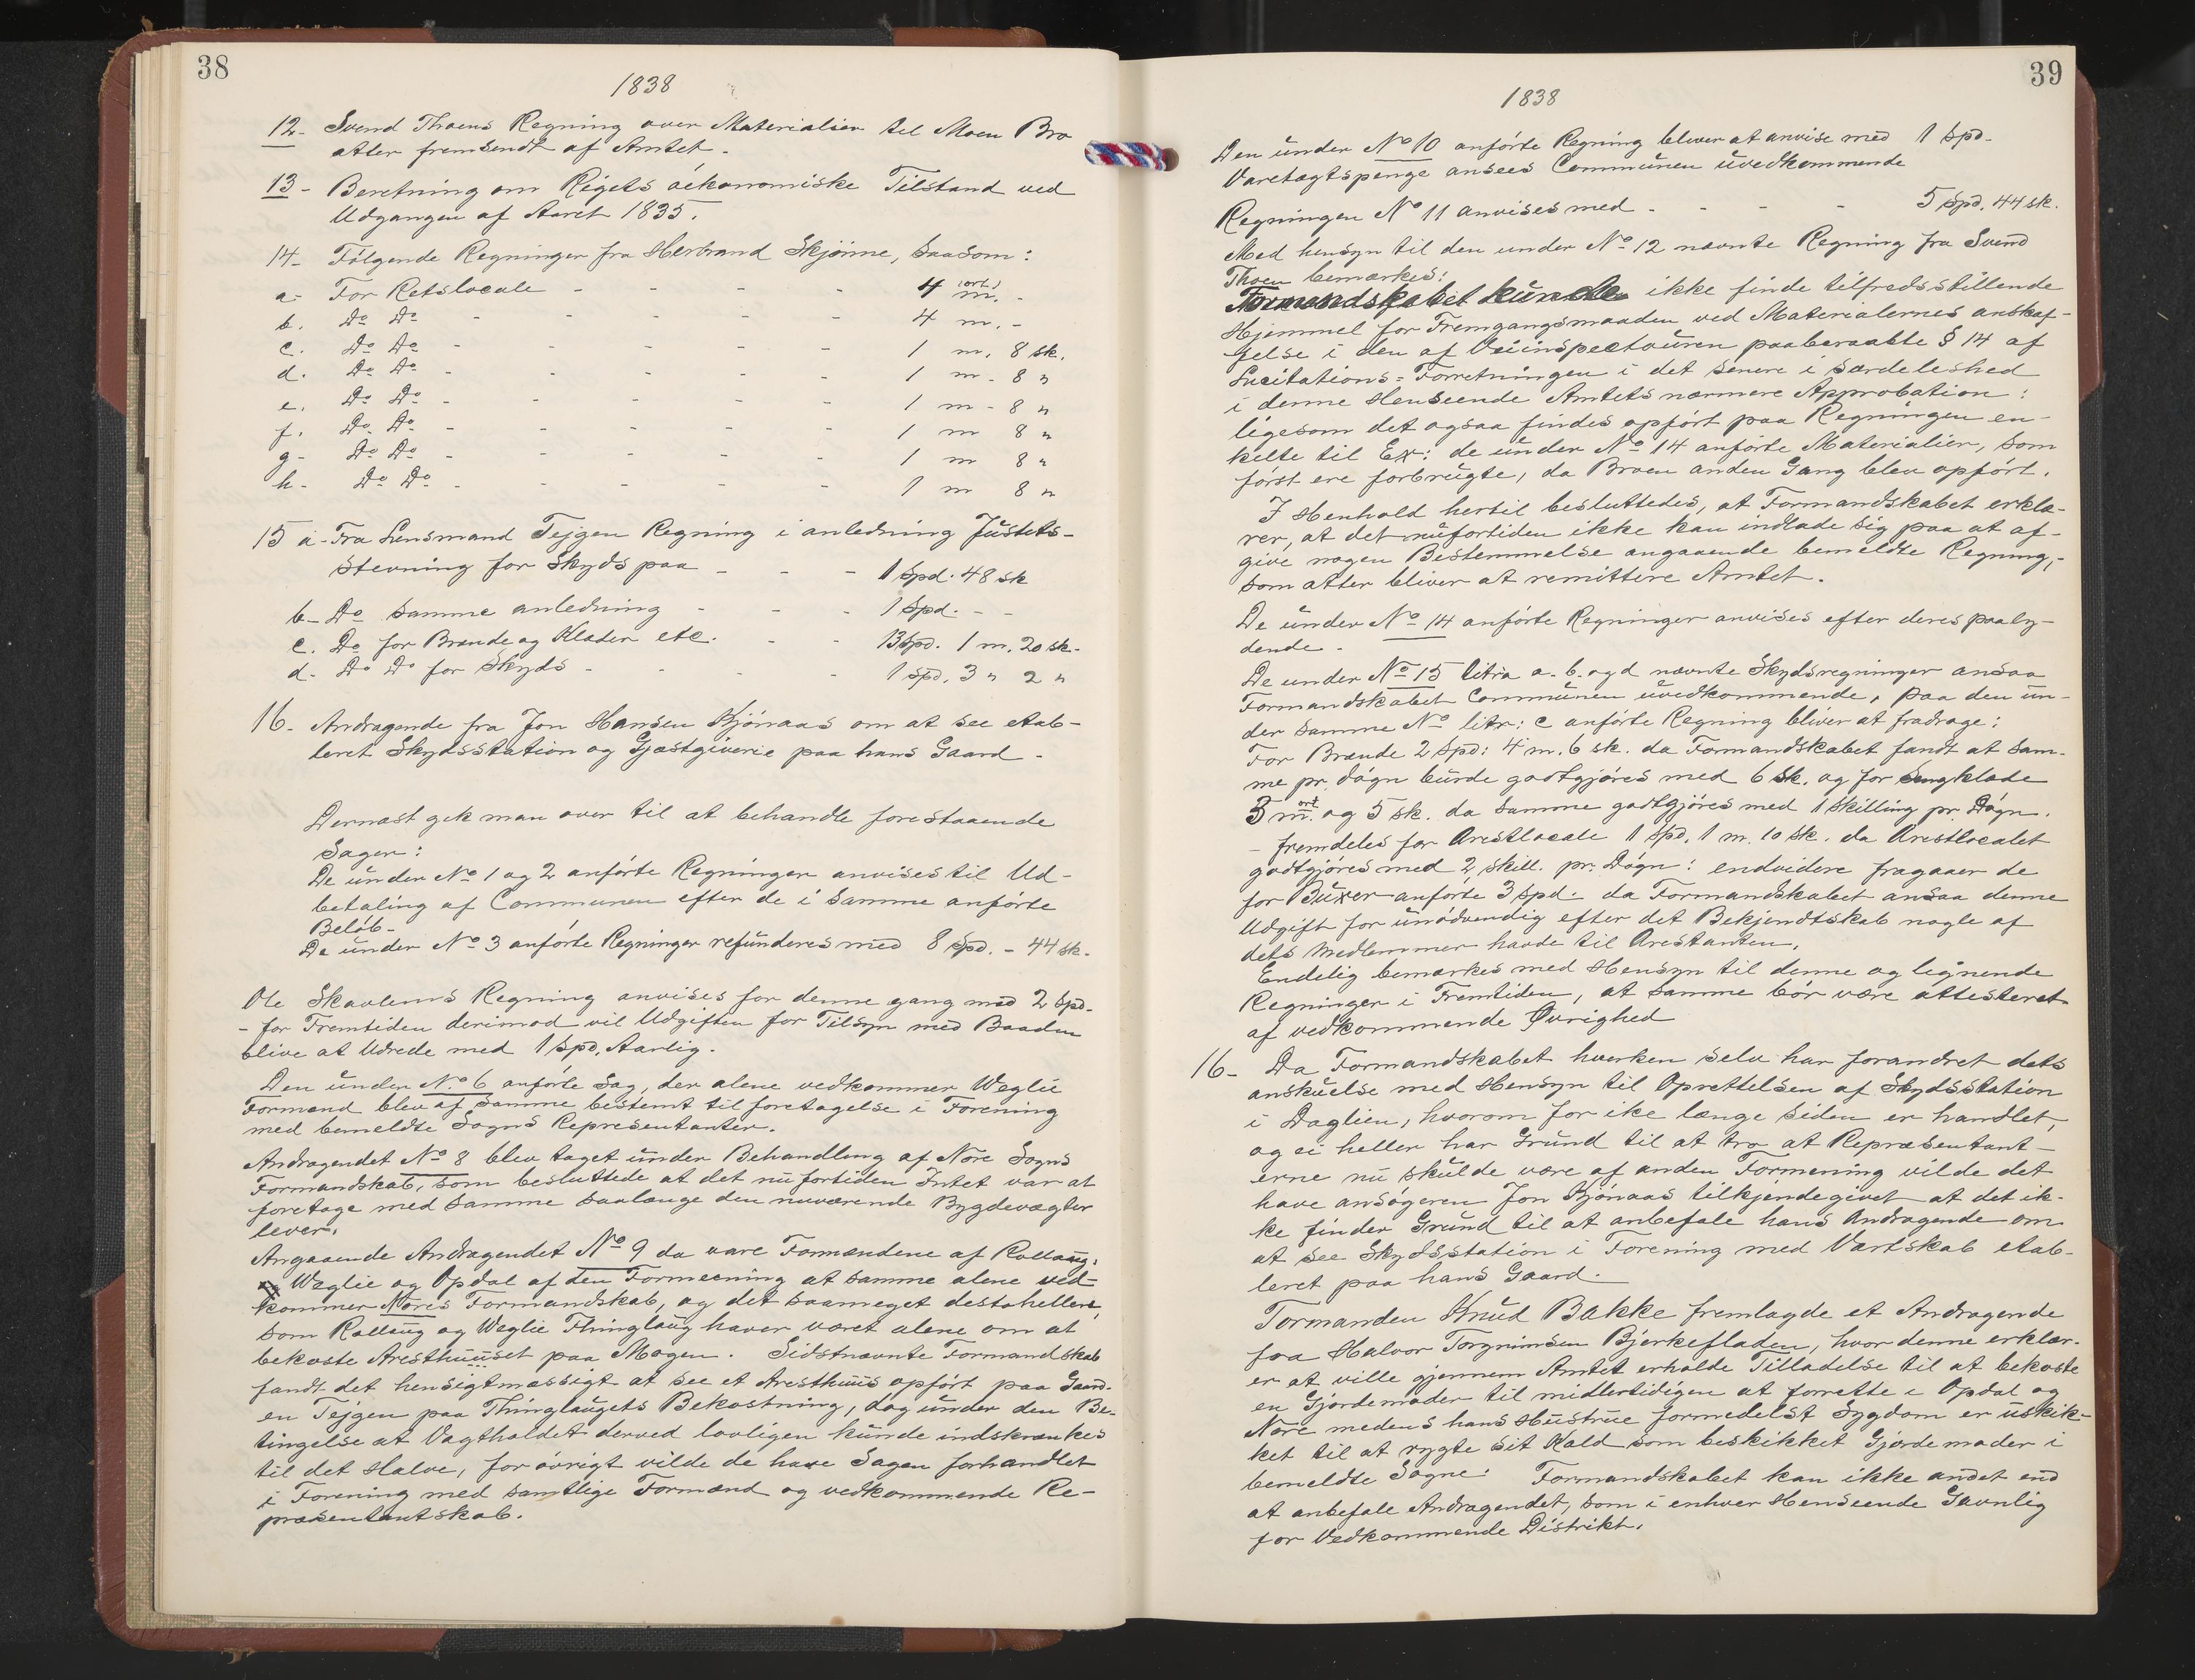 38
1838
12- Svend Thoens Regning over Materialier til Moen Bro
atter fremsendt af Amtet.
13- Beretning om Rigets oekonomiske Tilstand ved
Udgangen af Aaret 1835.
14- Følgende Regninger fra Herbrand Skjönne, saasom:
a- For Retslocale - - - - 4 m. (ort.) -
b. Do Do - - - - - 4 m. -
c. Do Do - - - - - 1 m. 8 sk.
d. Do Do - - - - 1 m - 8 "
e. Do Do - - - - 1 m - 8 "
f. Do Do - - - - - 1 m 8 "
g- Do Do - - - - - 1 m 8 "
h- Do Do - - - - - 1 m 8 "
15 a- Fra Lensmand Tejgen Regning i anledning Justits-
stevning for Skyds paa - - - 1 Spd: 48 sk
b- Do samme anledning - - - 1 Spd. - -
c. Do for Brænde og Klæder etc. - - 13 Spd. 1 m. 20 sk.
d- Do Do for Skyds - - - 1 Spd. 3 " 2 "
16. Andragende fra Jon Hansen Kjönaas om at see etab-
leret Skydsstation og Gjæstgiverie paa hans Gaard -
Dernæst gik man over til at behandle forestaaende
Sager:
De under No 1 og 2 anførte Regninger anvises til Ud-
betaling af Communen efter de i samme anførte
Beløb-
De under No 3 anførte Regninger refunderes med 8 Spd. - 44 sk.
Ole Skavlems Regning anvises for denne gang med 2 Spd.
- for Fremtiden derimod vil Udgiften for Tilsyn med Baaden
blive at Udrede med 1 Spd. Aarlig.
Den under No 6 anførte Sag, der alene vedkommer Weglie
Formænd blev af samme bestemt til foretagelse i Forening
med bemeldte Sogns Representanter.
Andragendet No 8 blev taget under Behandling af Nore Sogns
Formandskab, som besluttede at det nu fortiden Intet var at
foretage med samme saalænge den nuværende Bygdevægter
lever.
Angaaende Andragendet No 9 da vare Formændene af Rollaug,
Weglie og Opdal af den Formeening at samme alene ved-
kommer Nores Formandskab, og det saameget destohellere,
som Rollaug og Weglie Thinglaug haver været alene om at
bekoste Aresthuuset paa Mogen. Sidstnævnte Formandskab
fandt det hensigtmæssigt at see et Aresthuus opført paa Gaard-
en Tejgen paa Thinglaugets Bekostning, dog under den Be-
tingelse at Vagtholdet derved lovligen kunde indskrænkes
til det Halve, for øvrigt vilde de have Sagen forhandlet
i Forening med samtlige Formænd og vedkommende Re-
præsentantskab.
39
1838
Den under No 10 anførte Regning bliver at anvise med 1 Spd-
Varetægtspenge ansees Communen uvedkommende
Regningen No 11 anvises med - - - - 5 Spd. 44 sk.
Med hensyn til den under No 12 nævnte Regning fra Svend
Thoen bemærkes:
Formandskabet kunde ikke finde tilfredsstillende
Hjemmel for Fremgangsmaaden ved Materialernes anskaf-
felse i den af Veiinspecteuren paaberaabte § 14 af
Licitations=Forretningen i det senere i særdeleshed
i denne Henseende Amtets nærmere Approbation:
ligesom det ogsaa findes opført paa Regningen en-
kelte til Ex: de under No 14 anførte Materialier, som
først ere forbrugte, da Broen anden Gang blev opført.
I Henhold hertil besluttedes, at Formandskabet erklæ-
rer, at det nufortiden ikke kan indlade sig paa at af-
give nogen Bestemmelse angaaende bemeldte Regning,-
som atter bliver at remittere Amtet.
De under No 14 anførte Regninger anvises efter deres paaly-
dende-
De under No 15 litra a. b. og d nævnte Skydsregninger ansaa
Formandskabet Communen uvedkommende, paa den un-
der samme No litr: c anførte Regning bliver at fradrage:
For Brænde 2 Spd: 4 m. 6 sk. da Formandskabet fandt at sam-
me pr. døgn burde godtgjøres med 6 sk. og for sengklæde
3 m. ort og 5 sk. da samme godtgjøres med 1 skilling pr. Døgn.
- fremdeles for Arestlocale 1 Spd. 1 m. 10 sk. da Arestlocalet
godtgjøres med 2 skill. pr. Døgn: endvidere fragaaer de
for Buxer anførte 3 spd. da Formandskabet ansaa denne
Udgift for unødvendig efter det Bekjendtskab nogle af
dets Medlemmer havde til Arestanten.
Endelig bemærkes med Hensyn til denne og lignende
Regninger i Fremtiden, at samme bør være attesteret
af vedkommende Øvrighed
16- Da Formandskabet hverken selv har forandret dets
anskuelse med Hensyn til Oprettelsen af Skydsstation
i Daglien, hvorom for ike længe siden er handlet,
og ei heller har Grund til at tro at Repræsentant-
erne nu skulde være af anden Formening vilde det
have ansøgeren Jon Kjönaas tilkjendegivet at det ik-
ke finder Grund til at anbefale hans Andragende om
at see Skydsstation i Forening med Værtskab etab-
leret paa hans Gaard.
Formanden Knud Bakke fremlagde et Andragende
fra Halvor Torgrimsen Bjerkefladen, hvor denne erklær-
er at ville gjennem Amtet erholde Tilladelse til at bekoste
en Gjordemoder til midlertidigen at forrette i Opdal og
Nore medens hans Hustrue formedelst Sygdom er uskik-
ket til at røgte sit Kald som beskikket Gjordemoder i
bemeldte Sogne: Formandskabet kan ikke andet end
at anbefale Andragendet, som i enhver Henseende Gavnlig
for Vedkommende Distrikt.